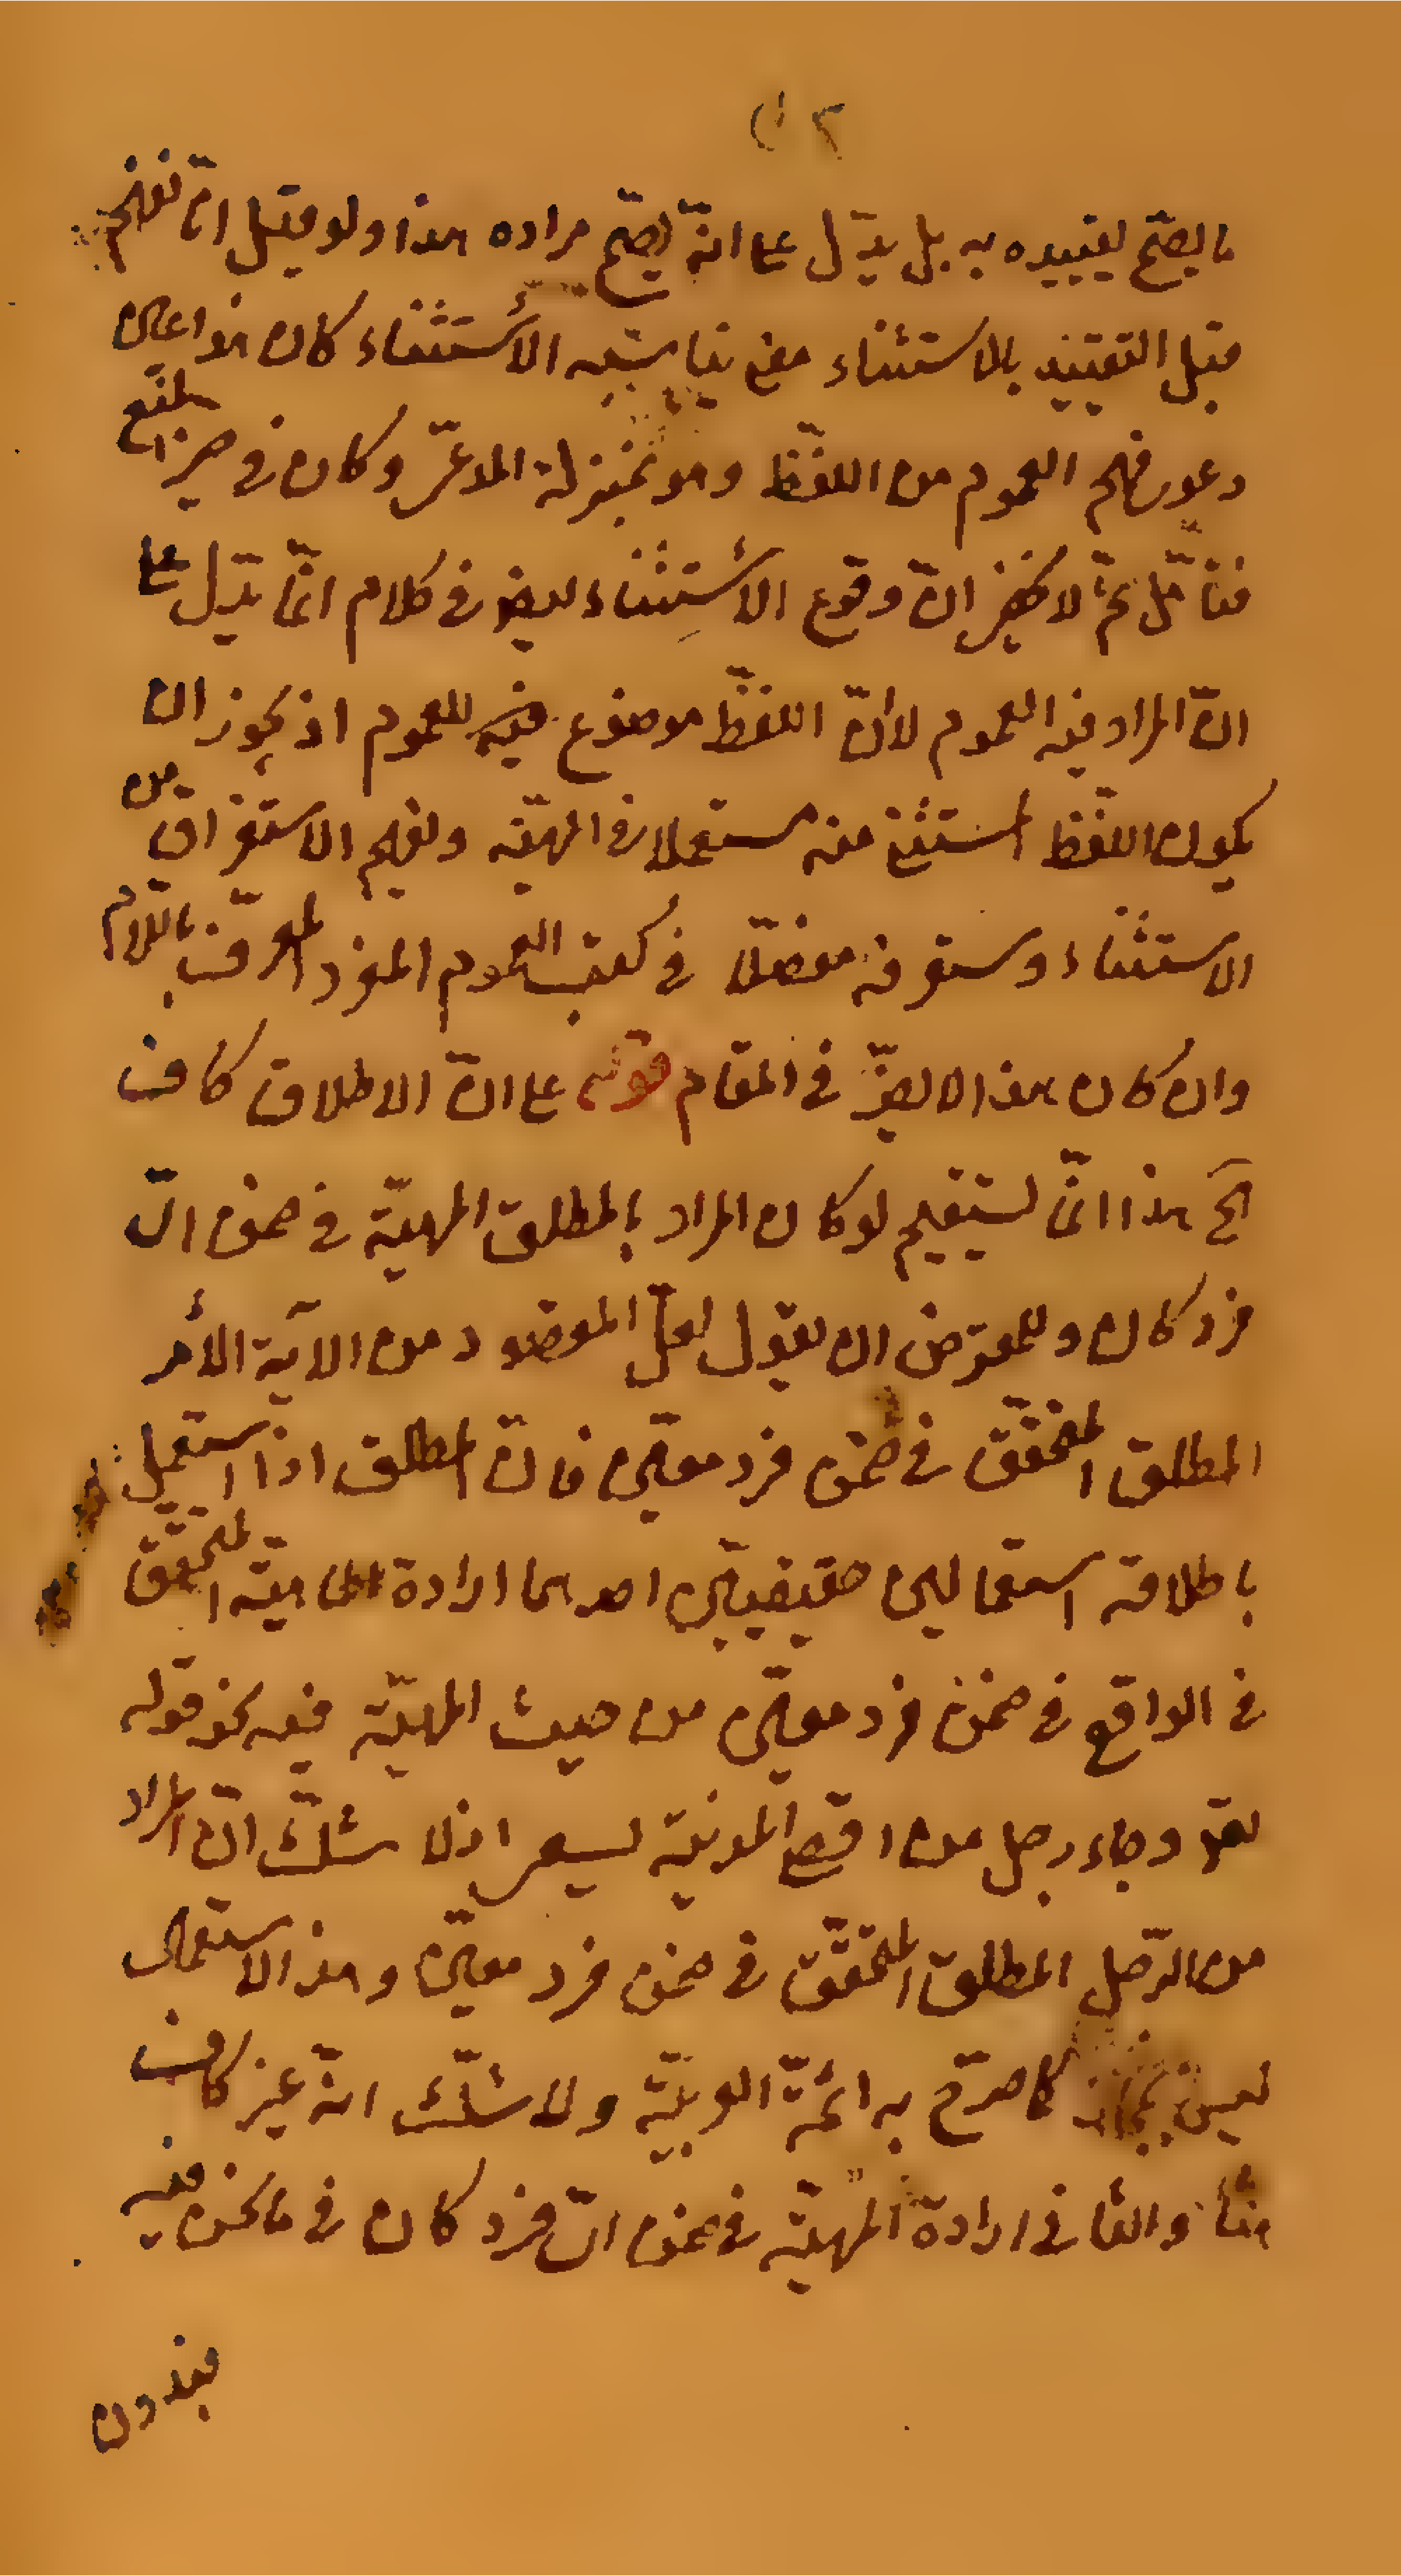 ما يصحّ تقييده به بل يدّل على انّه يصحّ مراده هذا ولو قيل انّا نفهم
قبل التقييد بالاستثناء معنى يناسبه الأستثناء كان هذا عين
دعوى فهم العموم من اللفظ وهو بمنزلة المدعّى وكان في حيز المنع
فتأمّل ثمّ لا يخفى انّ وقوع الأستثناء لبعض في كلام انّما يدّل على
انّ المراد فيه العموم لا انّ اللفظ موضوع فيه للعموم اذ يجوز ان
يكون اللفظ المستثنى منه مستعملا في المهيّة ويفهم الاستغراق من
الاستثناء وستعرفه مفصّلا في العموم المفرد المعرّف باللّام
وان كان هذا لا يضرّ في المقام قوله على انّ الاطلاق كاف
الخ هذا انّما يستقيم لو كان المراد بالمطلق المهيّة في ضمن اىّ
فرد كان وللمعترض ان يقول لعلّ المقصود من الآية الأمر
المطلق المتحقّق في ضمن فرد معيّن فانّ المطلق اذا استعمل
باطلاقه استعمالين حقيقيين احدهما ارادة الماهيّة المتحقّق
في الواقع في ضمن فرد معيّن من حيث المهيّة فيه نحو قوله
تعه وجاء رجل من اقصى المدينة يسعى اذ لا شكّ انّ المراد
من الرّجل المطلق المتحقّق في ضمن فرد معيّن وهذا الاستعمال
ليس بمجاز كما صرّح به ائمّة العربيّة ولا شكّ انّه غير كاف
هنا والثاني ارادة المهيّة في ضمن اىّ فرد كان في ما نحن فيه
فبدون